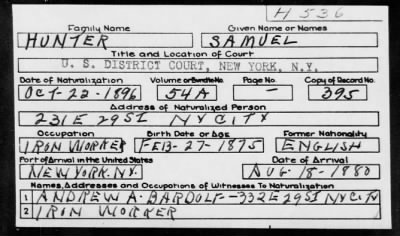 H 536
Family Name Given Name or Names
HUNTER SAMUEL
Title and Location of Court
U. S. DISTRICT COURT, NEW YORK, N.Y.
Date of Naturalization Volume or Bundle No. Page No. Copy of Record No.
OCT-22-1896 54A — 395
Address of Naturalized Person
231 E 29 ST NY CITY
Occupation Birth Date or Age Former Nationality
IRON WORKER FEB-27-1875 ENGLISH
Port of Arrival in the United States Date of Arrival
NEW YORK. NY. AUG-18-1880
Names, Addresses and Occupations of Witnesses To Naturalization
1 ANDREW A. BARDOLF--332 E 29 ST NY CITY
2 IRON WORKER